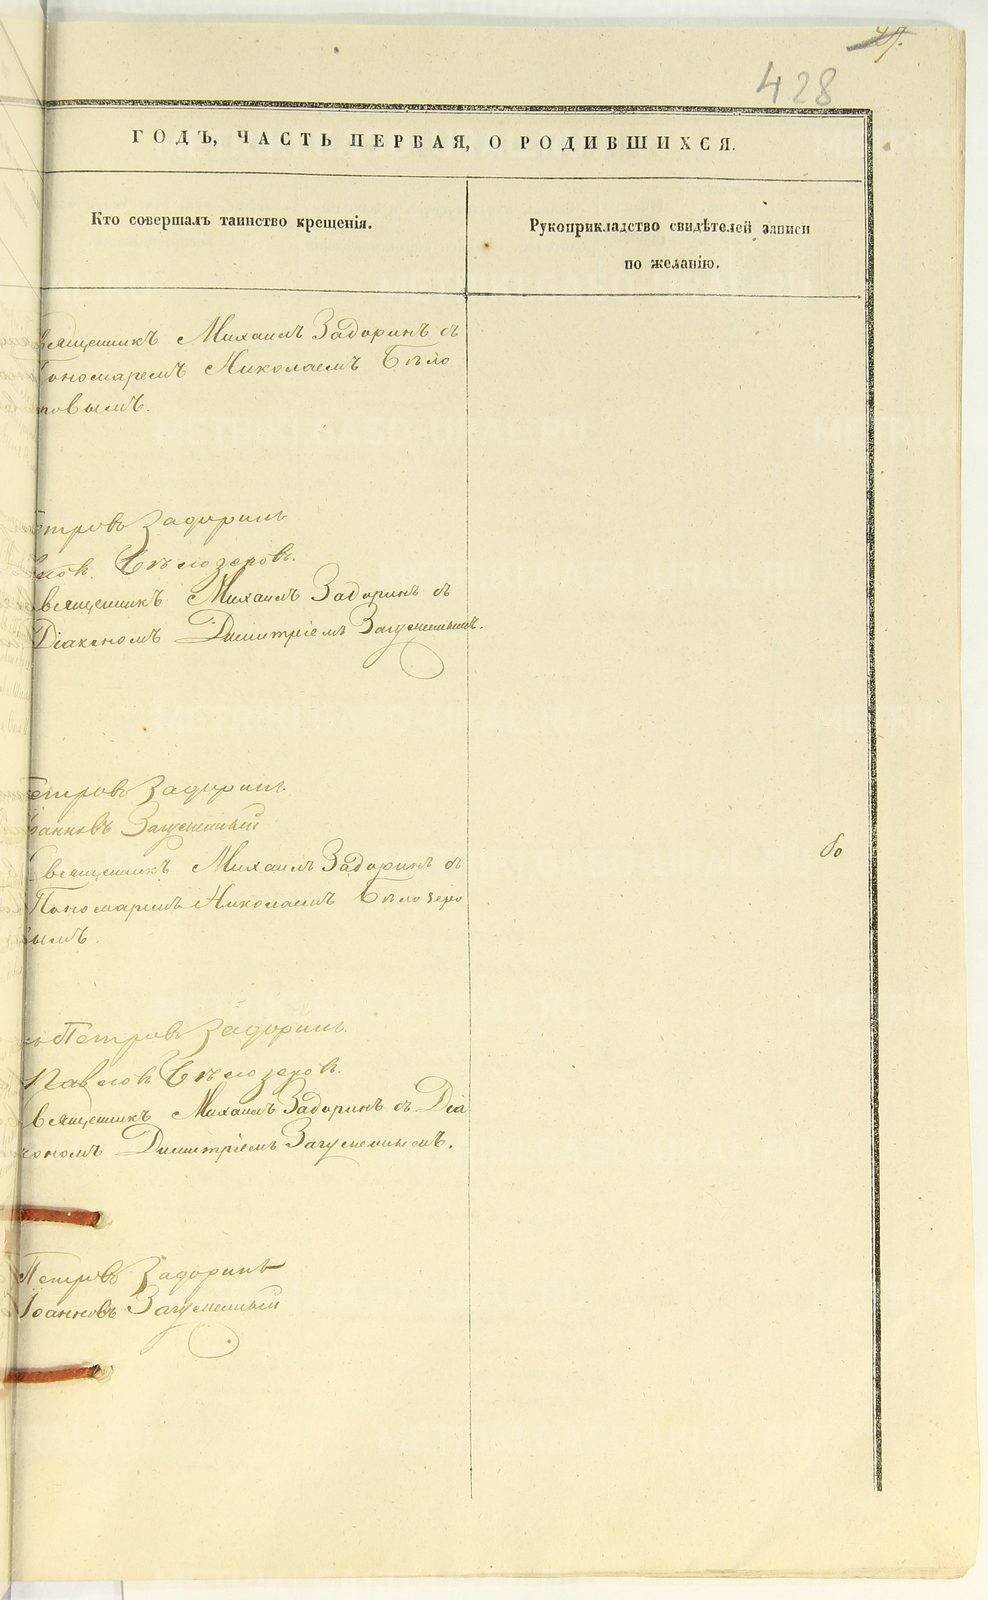 27.
428
ГОДЪ, ЧАСТЬ ПЕРВАЯ, О РОДИВШИХСЯ.
Кто совершалъ таинство крещенія.
Рукоприкладство свидѣтелей записи
по желанію.
вященникъ Михаилъ Задоринъ съ
Пономаремъ Николаемъ Бѣло
Петровъ Задоринъ
Бѣлозеровъ.
вященникъ Михаилъ Задоринъ съ
Діакономъ Димитріемъ Загуменнымъ.
Петровъ Задоринъ.
Іоанновъ Загуменный
Священникъ Михаилъ Задоринъ съ
Пономаремъ Николаемъ Бѣлозеро
вымъ.
Петровъ Задоринъ.
Павловъ Бѣлозеровъ.
вященникъ Михаилъ Задоринъ съ Діа
кономъ Димитріемъ Загуменнымъ.
Петровъ Задоринъ
Іоанновъ Загуменный
METRIKI.GASO-URAL.RU